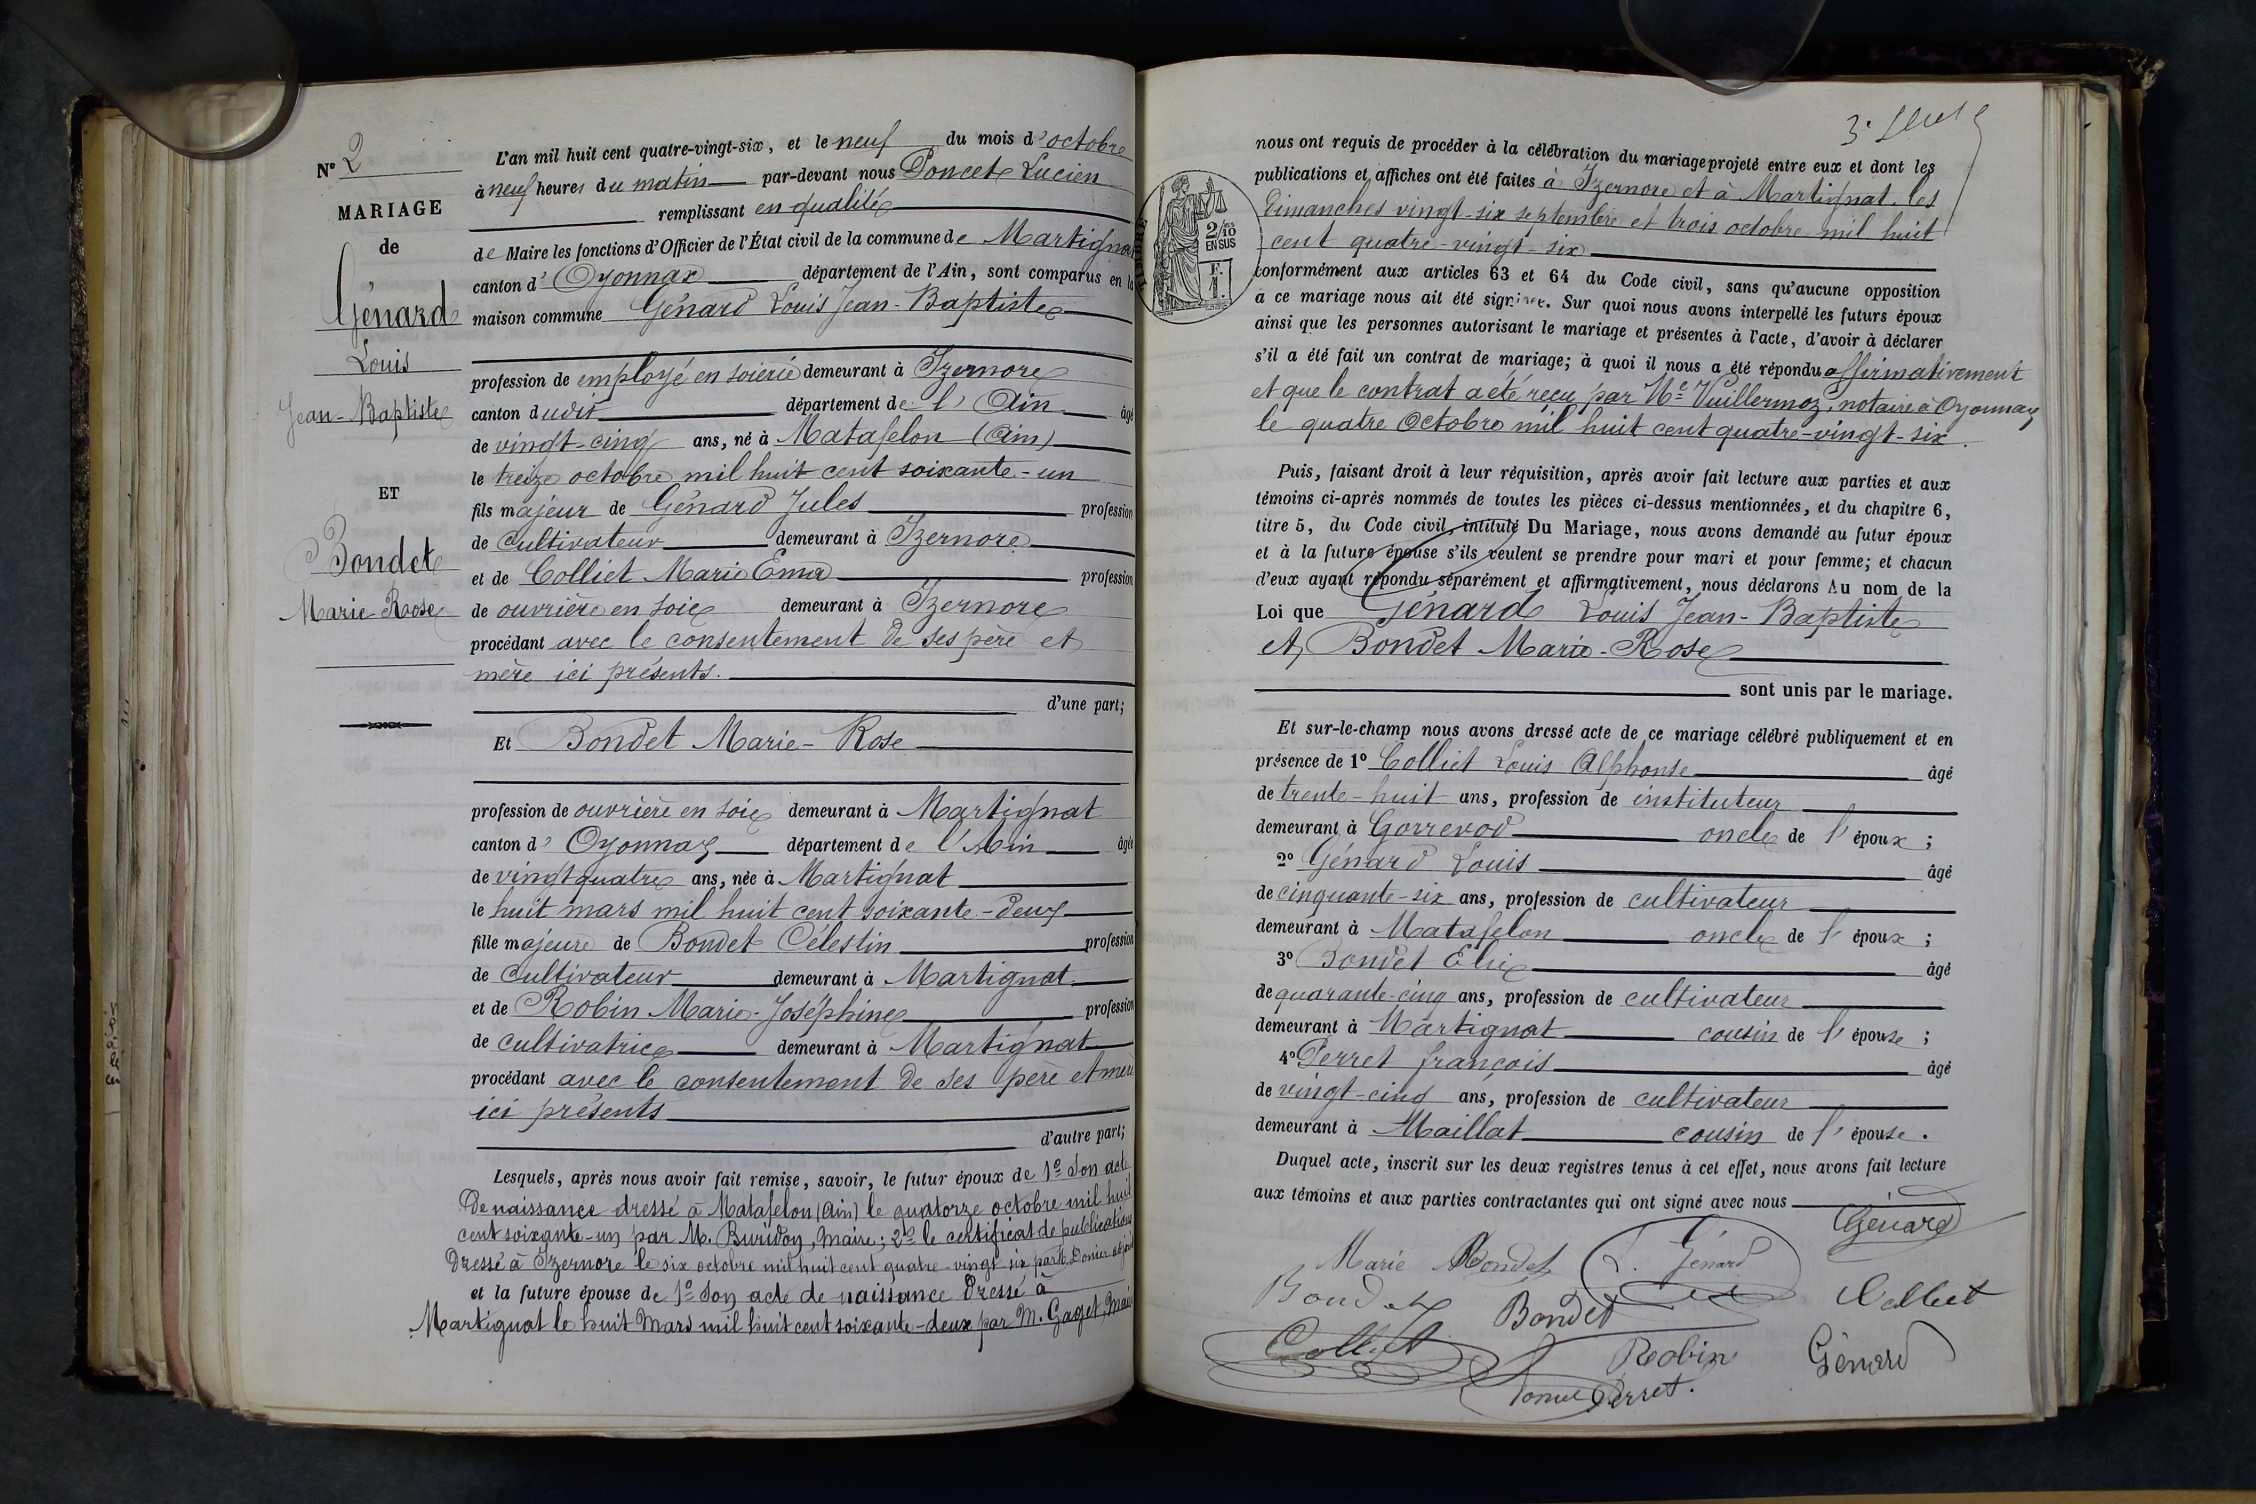 N° 2
MARIAGE
de
Génard
Louis
Jean-Baptiste
ET
Bondet
Marie-Rose
L'an mil huit cent quatre-vingt-six, et le neuf du mois d'octobre
à neuf heures du matin par-devant nous Poncet Lucien
remplissant en qualité
de Maire les fonctions d'Officier de l'État civil de la commune de Martignat
canton d'Oyonnax département de l'Ain, sont comparus en la
maison commune Génard Louis Jean-Baptiste
profession de employé en soierie demeurant à Izernore
canton dudit département de l'Ain âgé
de vingt-cinq ans, né à Matafelon (Ain)
le treize octobre mil huit cent soixante-un
fils majeur de Génard Jules profession
de cultivateur demeurant à Izernore
et de Colliet Marie Ema profession
de ouvrière en soie demeurant à Izernore
procédant avec le consentement de ses père et
mère ici présents.
d'une part;
Et Bondet Marie-Rose
profession de ouvrière en soie demeurant à Martignat
canton d'Oyonnax département de l'Ain âgée
de vingt quatre ans, née à Martignat
le huit mars mil huit cent soixante-deux
fille majeure de Bondet Célestin profession
de cultivateur demeurant à Martignat
et de Robin Marie-Joséphine profession
de cultivatrice demeurant à Martignat
procédant avec le consentement de ses père et mère
ici présents
d'autre part;
Lesquels, après nous avoir fait remise, savoir, le futur époux de 1° son acte
de naissance dressé à Matafelon (Ain) le quatorze octobre mil huit
cent soixante-un par M. Buridon, maire; 2° le certificat de publications
dressé à Izernore le six octobre mil huit cent quatre-vingt-six par M.
et la future épouse de 1° son acte de naissance dressé à
Martignat le huit Mars mil huit cent soixante-deux par M. Gaget, Maire
TIMBRE
2/10
EN SUS
F.
1.
nous ont requis de procéder à la célébration du mariage projeté entre eux et dont les
publications et affiches ont été faites à Izernore et à Martignat les
Dimanches vingt-six septembre et trois octobre mil huit
cent quatre-vingt-six
conformément aux articles 63 et 64 du Code civil, sans qu'aucune opposition
a ce mariage nous ait été signifiée. Sur quoi nous avons interpellé les futurs époux
ainsi que les personnes autorisant le mariage et présentes à l'acte, d'avoir à déclarer
s'il a été fait un contrat de mariage; à quoi il nous a été répondu affirmativement
et que le contrat a été reçu par Me Vuillermoz, notaire à Oyonnax,
le quatre Octobre mil huit cent quatre-vingt-six.
Puis, faisant droit à leur réquisition, après avoir fait lecture aux parties et aux
témoins ci-après nommés de toutes les pièces ci-dessus mentionnées, et du chapitre 6,
titre 5, du Code civil, intitulé Du Mariage, nous avons demandé au futur époux
et à la future épouse s'ils veulent se prendre pour mari et pour femme; et chacun
d'eux ayant répondu séparément et affirmativement, nous déclarons Au nom de la
Loi que Génard Louis Jean-Baptiste
et Bondet Marie-Rose
sont unis par le mariage.
Et sur-le-champ nous avons dressé acte de ce mariage célébré publiquement et en
présence de 1° Colliet Louis Alphonse âgé
de trente-huit ans, profession de instituteur
demeurant à Gorrevod oncle de l'époux;
2° Génard Louis âgé
de cinquante-six ans, profession de cultivateur
demeurant à Matafelon oncle de l'époux;
3° Bondet Elie âgé
de quarante-cinq ans, profession de cultivateur
demeurant à Martignat cousin de l'épouse;
4° Perret françois âgé
de vingt-cinq ans, profession de cultivateur
demeurant à Maillat cousin de l'épouse.
Duquel acte, inscrit sur les deux registres tenus à cet effet, nous avons fait lecture
aux témoins et aux parties contractantes qui ont signé avec nous
Génard
Marie Bondet L. Génard
Bondet Bondet Colliet
Colliet Robin Génard
Perret.